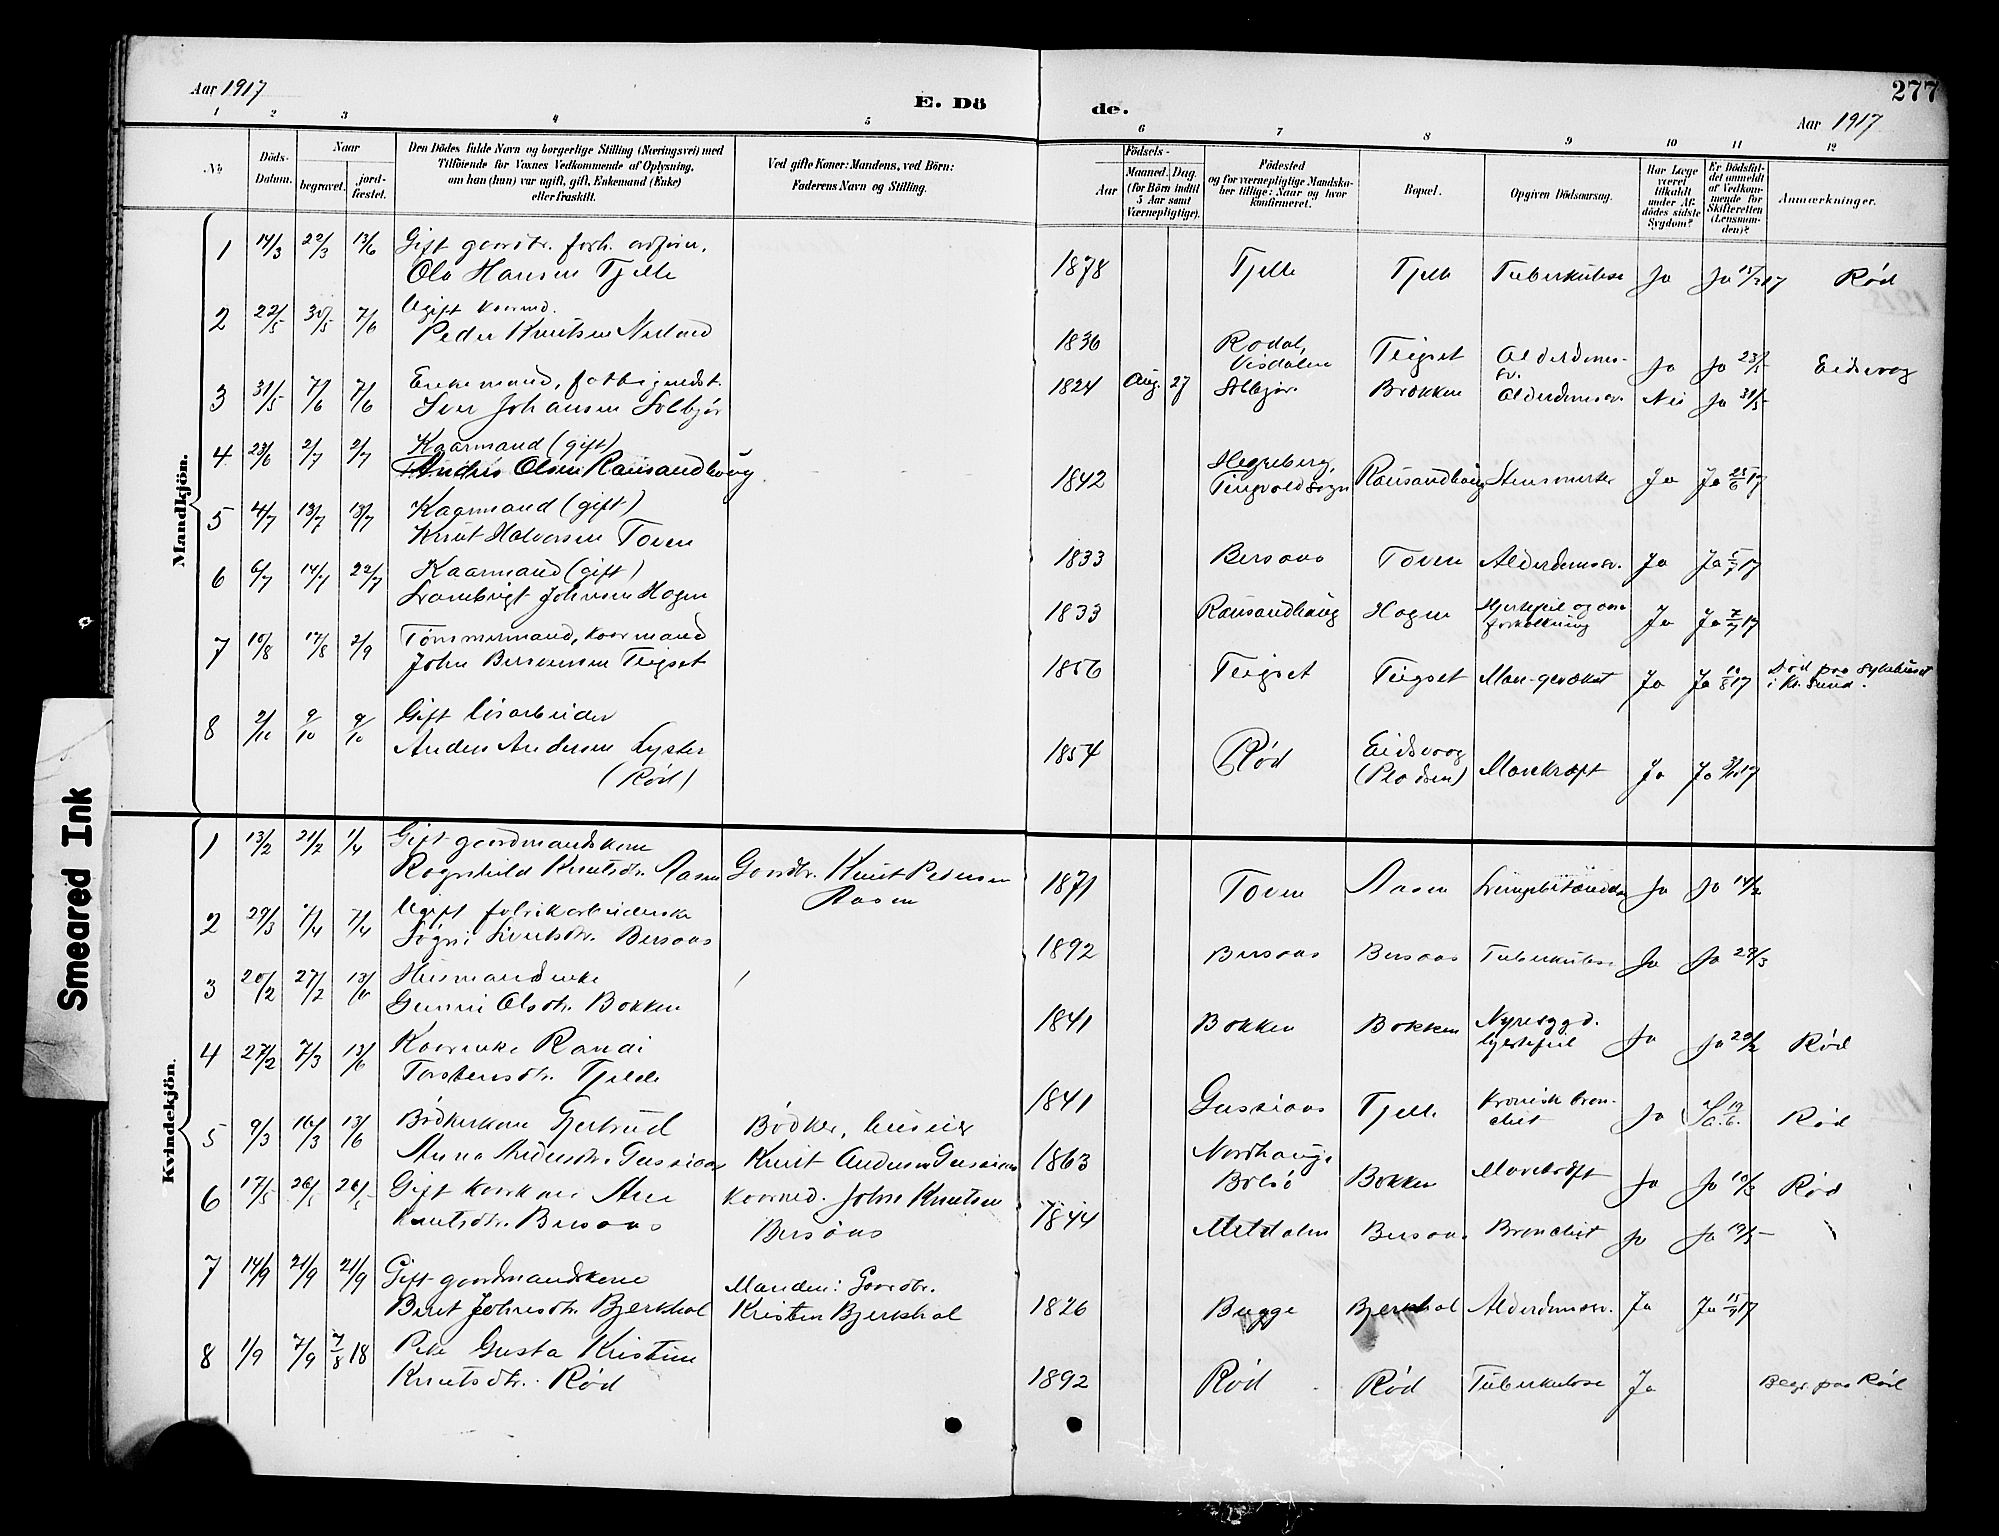 Aar 1917
E. Dö
de.
Aar 1917
277
1 2 3 4 5 6 7 8 9 10 11 12
No
Döds-Datum.
Naar
begravet.
jord-fæstet.
Den Dödes fulde Navn og borgerlige Stilling (Næringsvei) med
Tilföiende for Voxnes Vedkommende af Oplysning,
om han (hun) var ugift, gift, Enkemand (Enke)
eller fraskilt.
Ved gifte Koner: Mandens, ved Börn:
Faderens Navn og Stilling.
Födsels-
Aar
Maaned. Dag.
(for Börn indtil
5 Aar samt
Værnepligtige).
Födested
og for værnepligtige Mandska-
ber tillige: Naar og hvor
konfirmeret.
Bopæl.
Opgiven Dödsaarsag.
Har Læge
været
tilkaldt
under Af-
dödes sidste
Sygdom?
Er Dödsfal-
det anmeldt
af Vedkom-
mende for
Skifteretten
(Lensman-
den)?
Anmærkninger.
Mandkjön.
1 14/3 22/3 13/6 Gift gaardbr. forh.
Ola Hansen Tjelle 1878 Tjelle Tjelle Tuberkulose Ja Ja 15/3 17 Rød
2 22/5 30/5 7/6 Ugift kaarmd.
Peder Knutsen Nerland 1836 Rodal, Visdalen Teigset Alderdoms-sv. Ja Ja 23/5 Eidsvaag
3 31/5 7/6 7/6 Enkemand,
Iver Johansen Solbjør 1824 Aug. 27 Solbjør Brokken Alderdomssv. Nei Ja 31/5
4 23/6 2/7 2/7 Kaarmand (gift)
Anders Olsen Rausandhaug 1842 Hegreberg, Tingvold sogn Rausandhaug Ja Ja 25/6 17
5 4/7 13/7 13/7 Kaarmand (gift)
Knut Halvorsen Toven 1833 Bersaas Toven Alderdomssv. Ja Ja 5/7 17
6 6/7 14/7 22/7 Kaarmand (gift)
Johnsen Hagen 1833 Rausandhaug Hagen Hjertefeil og aare forkalkning Ja Ja 7/7 17
7 10/8 17/8 2/9 Tømmermand, kaarmand
John Teigset 1856 Teigset Teigset Ja Ja 10/8 17 Død paa sykehuset
i Kr.sund.
8 2/10 9/10 9/10 Gift løsarbeider
Anders Andersen Lyster
(Rød) 1854 Rød Eidsvaag Mavekræft Ja Ja
Kvindekjön.
1 13/2 21/2 1/4 Gift gaardmandskone
Ragnhild Knutsdtr. Aasen Gaardbr. Knut Pedersen
Aasen 1871 Toven Aasen Ja Ja 14/2
2 29/3 7/4 7/4 Ugift fabrikarbeiderske
Bersaas 1892 Bersaas Bersaas Tuberkulose Ja Ja 29/3
3 20/2 27/2 13/6 Husmandsenke
Olsdtr. Bokken 1841 Bokken Bokken Nyresygd. hjertefeil Ja Ja 20/2 Rød
4 27/2 7/3 13/6 Kaarenke Randi
Torstensdtr. Tjelle 1841 Gussiaas Tjelle Kronisk bron-chit Ja Ja Rød
5 9/3 16/3 13/6 Bødkerkone Gjertrud
Anna Andersdtr. Gussiaas Bødker,
Knut Andersen Gussiaas 1863 Nordhaug, Bolsø Bokken Mavekræft Ja Ja 10/3 Rød
6 17/5 26/5 26/5 Gift kaarkone Ane
Knutsdtr. Bersaas Kaarmd. John Knutsen
Bersaas 1844 Meldalen Bersaas Bronchit Ja Ja 19/5
7 14/9 21/9 21/9 Gift gaardmandskone
Berit Johnsdtr. Bjerkhol Manden: Gaardbr.
Kristen Bjerkhol 1826 Bugge Bjerkhol Alderdomssv. Ja Ja 15/9 17
8 1/9 7/9 7/8 18 Pike Gusta Kristine
Knutsdtr. Rød 1892 Rød Rød Tuberkulose Ja Begr. paa Rød
Smeared Ink